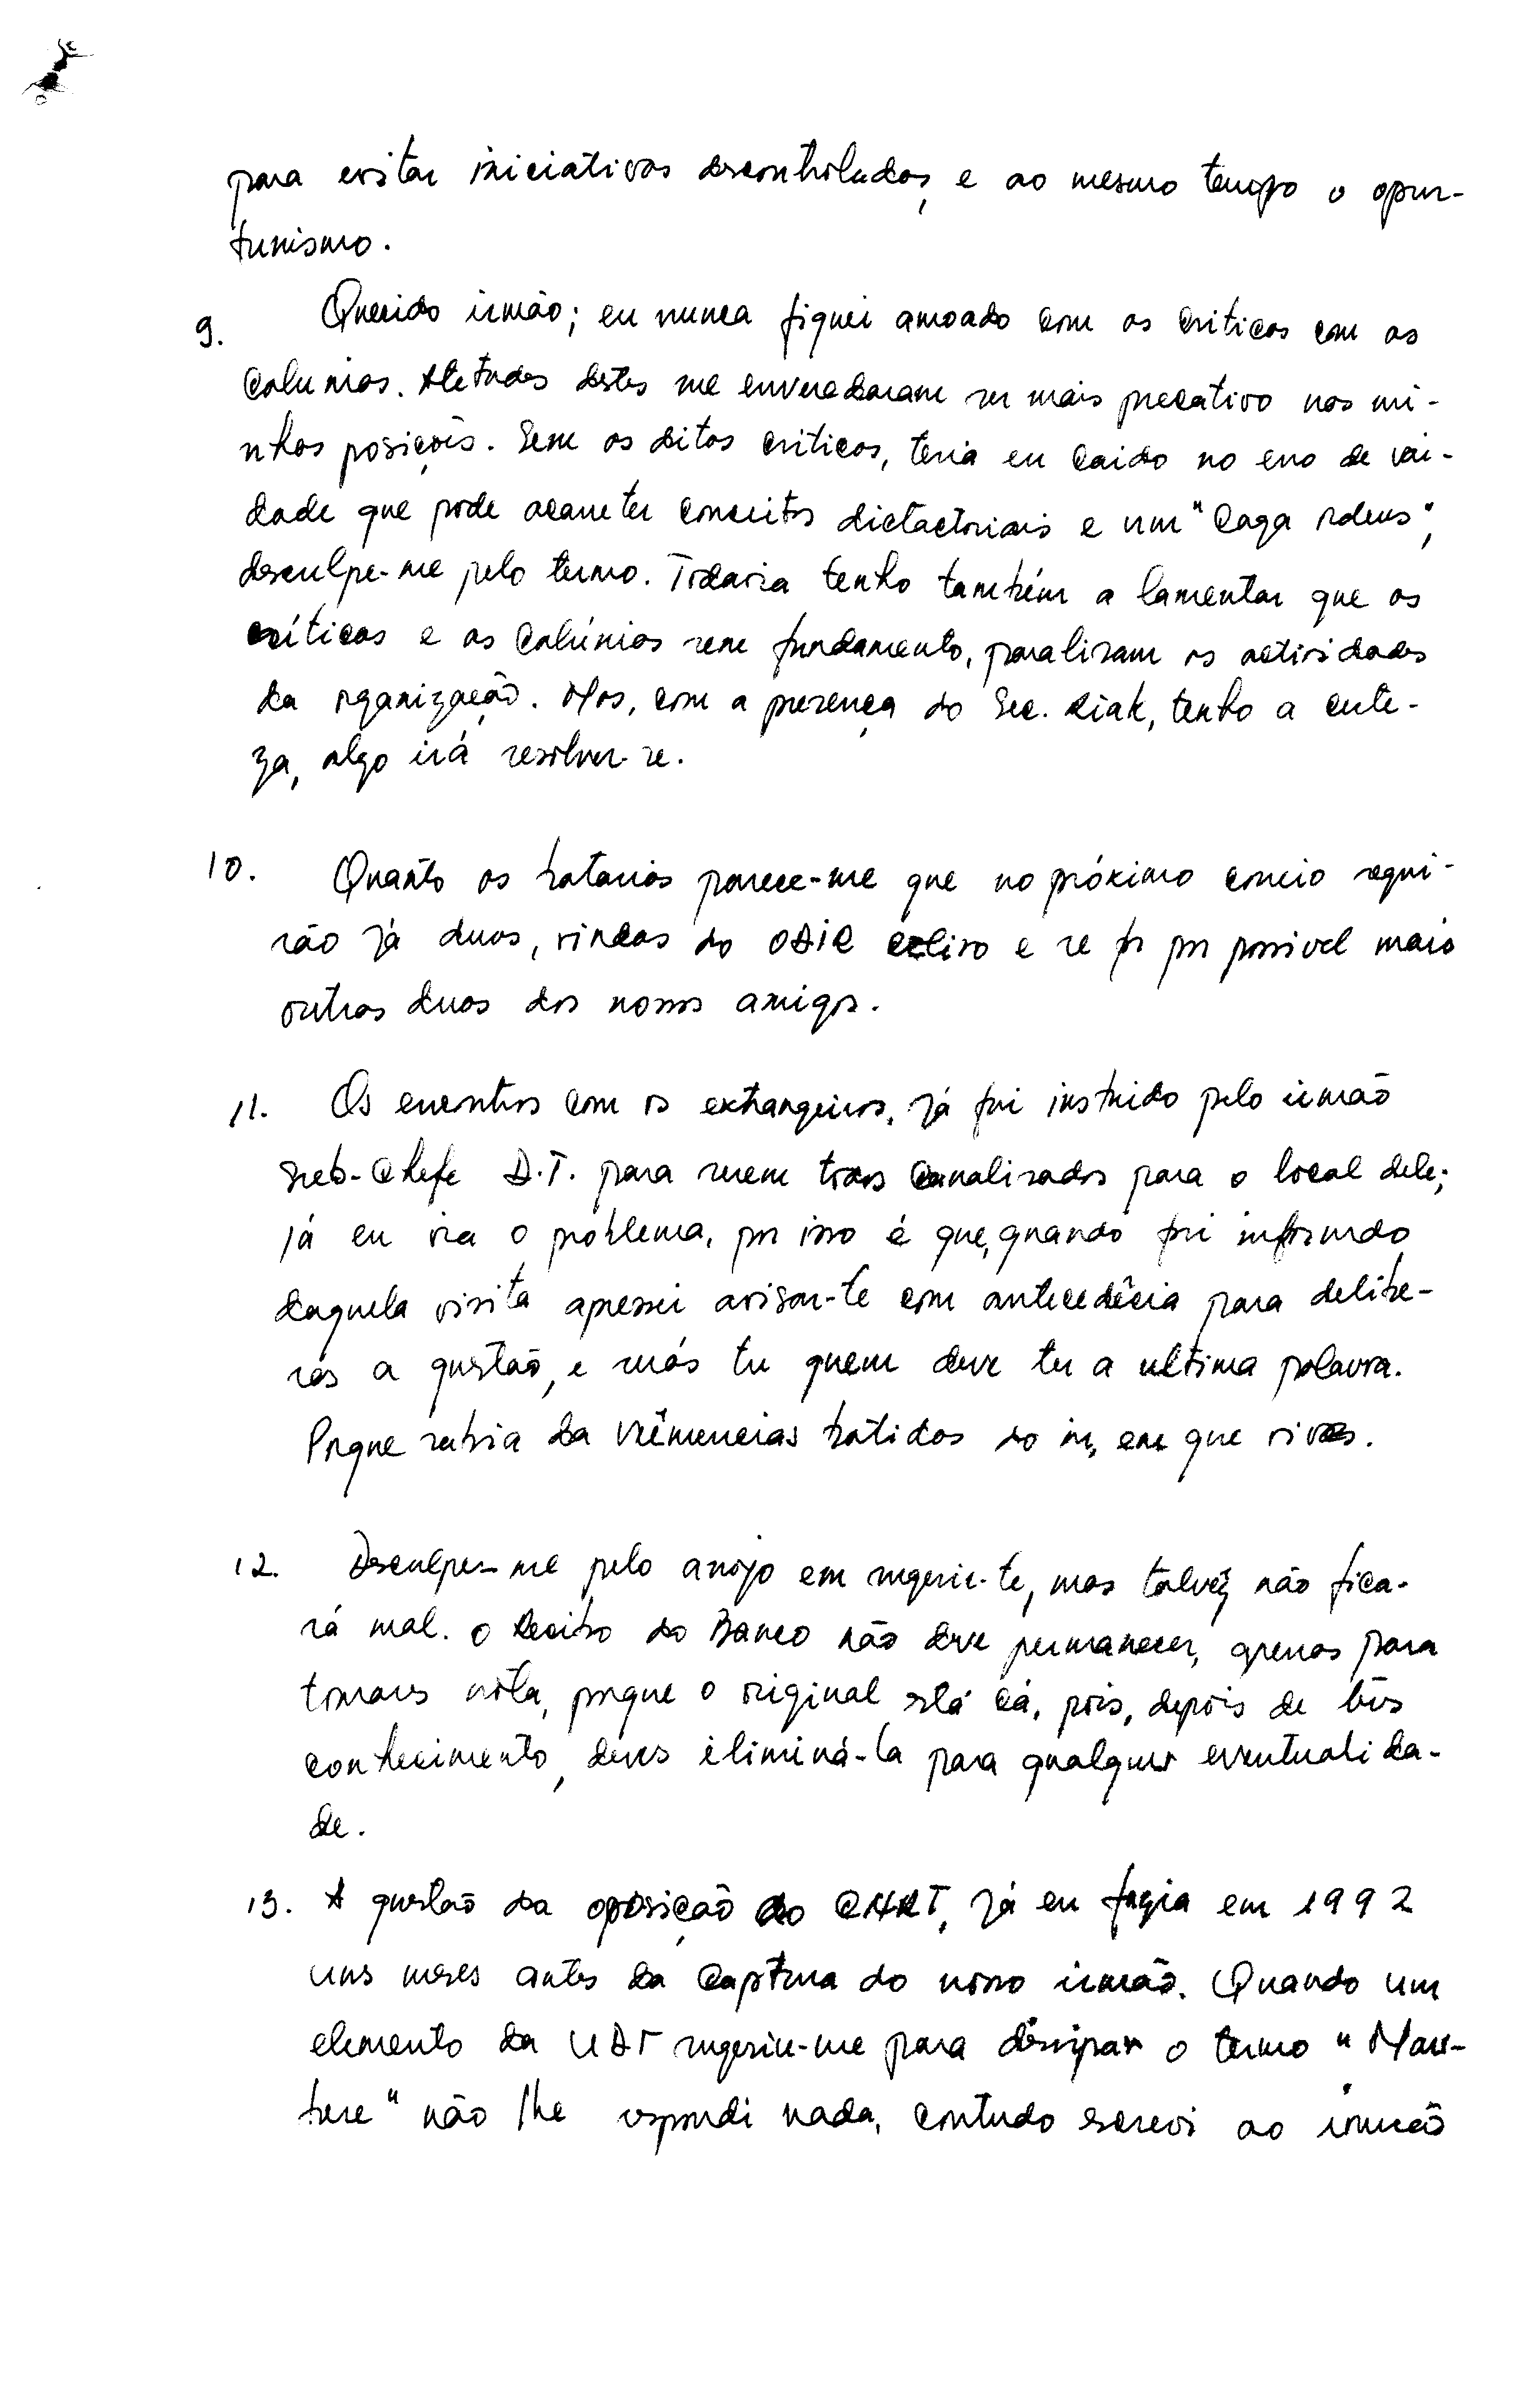 para evitar iniciativas descontroladas, e ao mesmo tempo o opor-
tunismo.
9. Querido irmão; eu nunca fiquei amoado com as criticas com as
Calunias. Atetudes destes me enveredaram ser mais precativo nas mi-
nhas posições. Sem as ditas criticas, teria eu caido no erro de vai-
dade que pode acarreter conceitos dictactoriais e um "Caga ordens",
desculpe-me pelo termo. Todavia tenho também a lamentar que as
críticas e as Calúnias sem fundamento, paralisam as actividades
da organização. Mas, com a presença do Sec. Riak, tenho a certe-
za, algo irá resolver-se.
10. Quanto as batarias parece-me que no próximo correio segui-
rão já duas, vindas do OAIR exliro e se for por possivel mais
outras duas dos nossos amigos.
11. Os encontros com os extrangeiros, já fui instruido pelo irmão
Sub-Chefe D.T. para serem todos Canalizados para o local dele;
já eu via o problema, por isso é que, quando fui informado
daquela visita apressei avisar-te com antecedêcia para delibe-
rás a questão, e serás tu quem deve ter a ultima palavra.
Porque sabia da veêmencias batidas do in, em que vives.
12. Desculpes-me pelo anojo em sugerir-te, mas talvêz não fica-
rá mal. O Recibo do Banco não deve permanecer, apenas para
tomares nota, porque o original está cá, pois, depois de teres
conhecimento, deves eliminá-la para qualquer eventualida-
de.
13. A questão da oposição ao CNRT, já eu fazia em 1992
uns meses antes da Captura do nosso irmão. Quando um
elemento da UDT sugeriu-me para dissipar o termo "Mau-
bere" não lhe respondi nada, contudo escrevi ao irmão